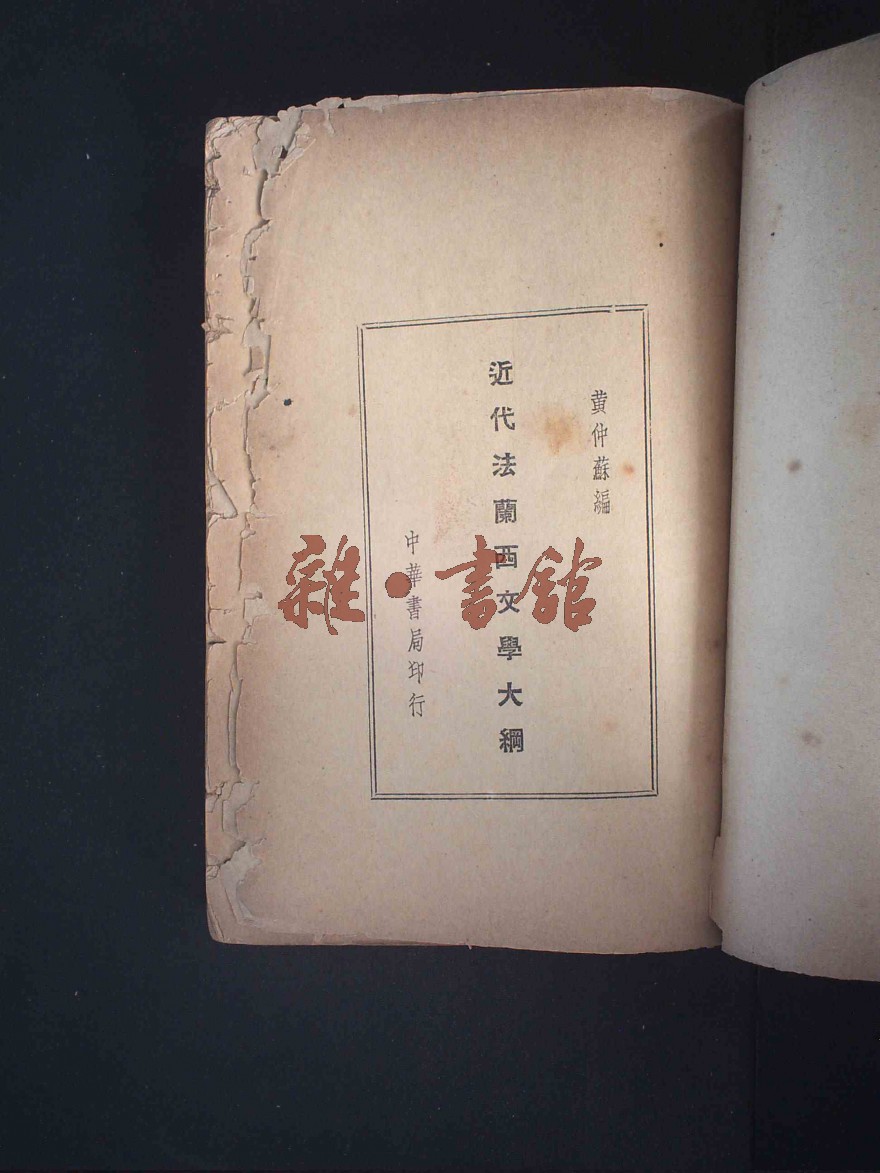 黄仲蘇編
近代法蘭西文學大綱
中華書局印行
雜·書館